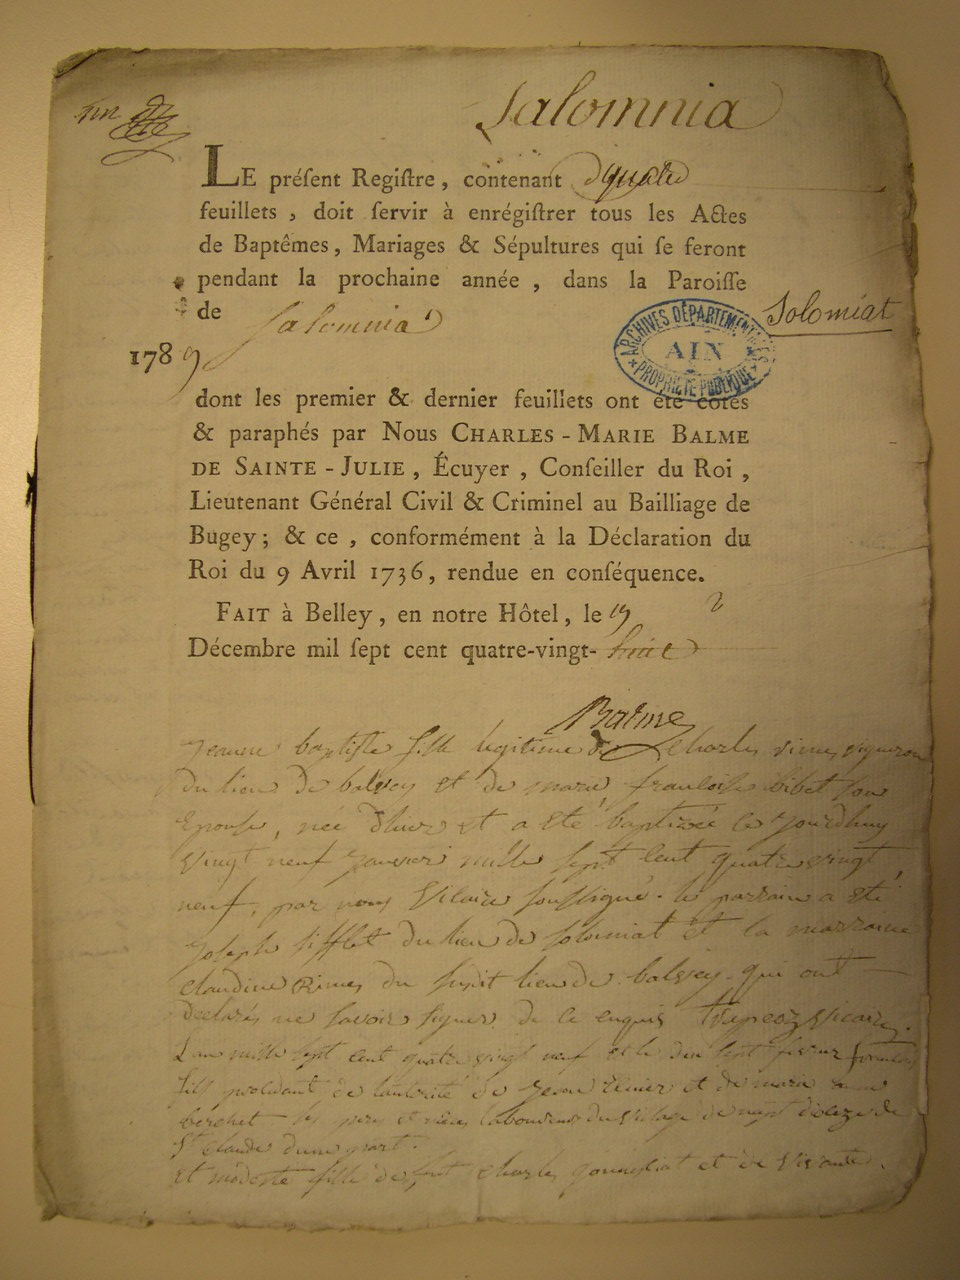 Salomnia
LE préſent Regiſtre, contenant quatre
feuillets, doit ſervir à enrégiſtrer tous les Actes
de Baptêmes, Mariages & Sépultures qui ſe feront
pendant la prochaine année, dans la Paroiſſe
de Salomnia
Solomiat
ARCHIVES DÉPARTEMENTALES
AIN
PROPRIÉTÉ PUBLIQUE
1789
dont les premier & dernier feuillets ont été cotés
& paraphés par Nous CHARLES-MARIE BALME
DE SAINTE-JULIE, Écuyer, Conſeiller du Roi,
Lieutenant Général Civil & Criminel au Bailliage de
Bugey; & ce, conformément à la Déclaration du
Roi du 9 Avril 1736, rendue en conſéquence.
FAIT à Belley, en notre Hôtel, le 19
Décembre mil ſept cent quatre-vingt-huit
Balme
jeanne baptiste fille legitime de Charles vigneron
du lieu de balvey et de marie francoise bibet son
Epouse, née d'hier et a été baptisée ce jourdhuy
vingt neuf janvier mille sept cent quatre vingt
neuf, par nous vicaire soussigné. le parrain a été
joseph sifflet du lieu de solomiat et la marraine
claudine du susdit lieu de balvey. qui ont
declarés ne savoir signer de ce enquis vicaire.
L'an mille sept cent quatre vingt neuf et le dix sept fevrier francois
fils de l'autorité de jean et de marie
les pere et mere laboureurs du village de diocèze de
St claude d'une part.
et modeste fille de feut charles et de